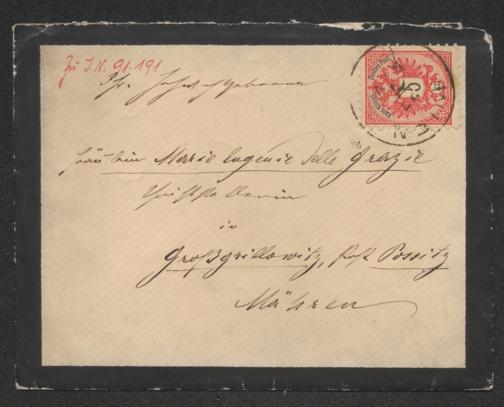 Zu J. N. 91.191
Ihr. Hochwohlgeboren
Fräulein Marie Eugenie delle Grazie
Schriftstellerin
in
Großgrillowitz, Post Possitz
Mähren
5
WIEN